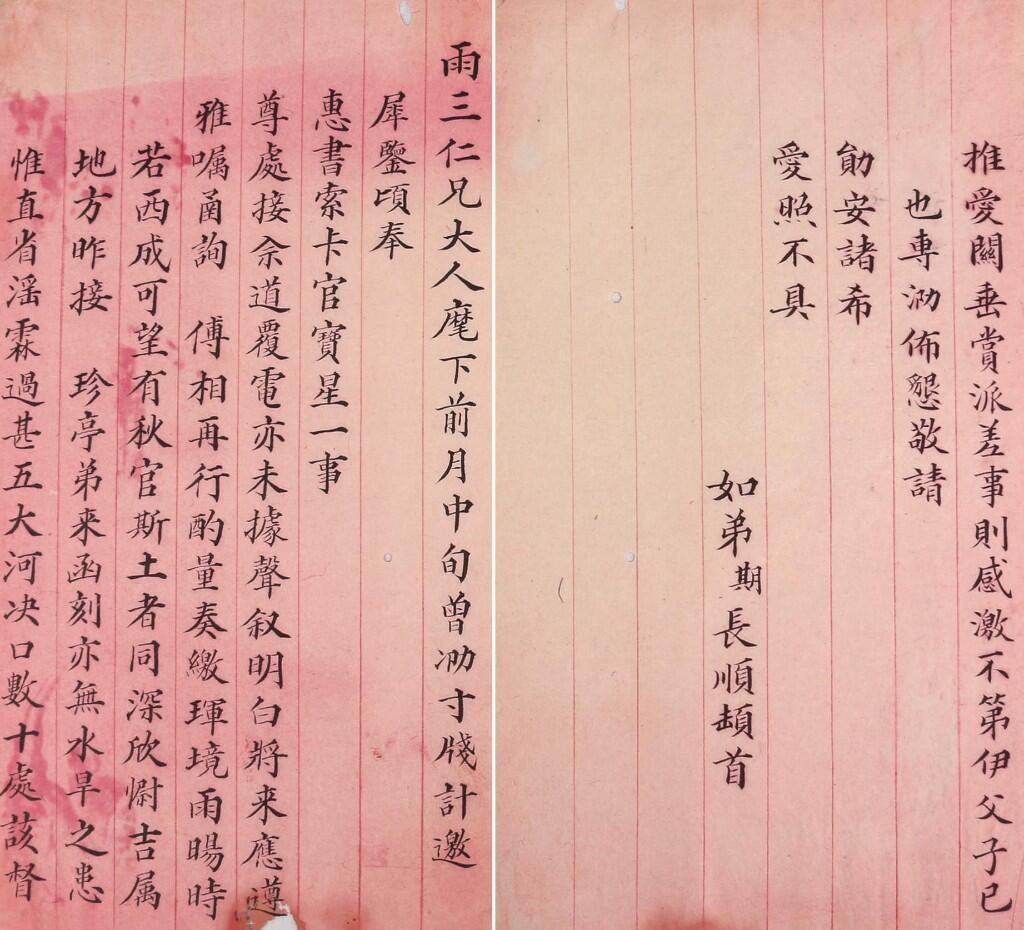 雨三仁兄大人麾下前月中旬曾泐寸牋計邀
犀鑒頃奉
惠書索卡官寶星一事
尊處接佘道覆電亦未據聲叙明白將来應遵
雅囑圅詢 傅相再行酌量奏繳琿境雨暘時
若西成可望有秋官斯土者同深欣慰吉属
地方昨接 珍亭弟来函刻亦無水旱之患
惟直省滛霖過甚五大河决口數十處該督
推愛關垂賞派差事則感激不第伊父子已
也專泐佈懇敬請
勛安諸希
愛照不具
如弟期長順頓首